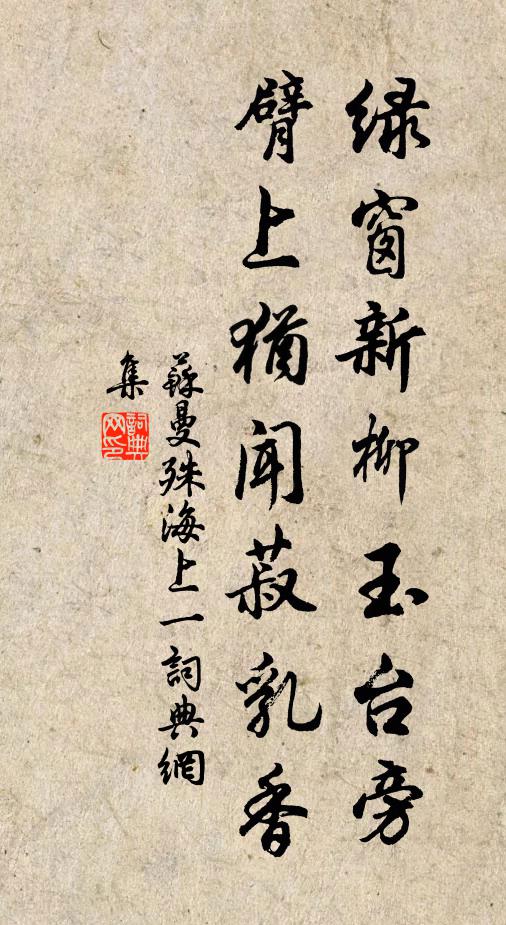 绿窗新柳玉台旁
臂上犹闻菽乳香
蘇曼殊海上一詞典網
集
詞典
网印